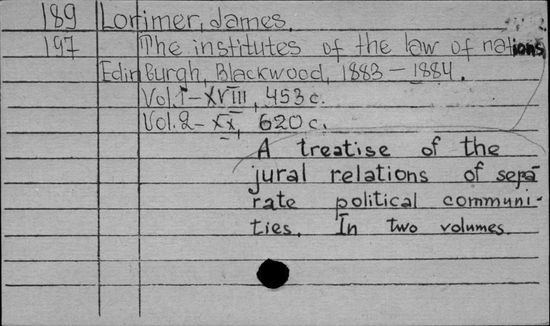 189 Lorimer, James.
197 The institutes of the law of nations
Edinburgh, Blackwood, 1883 – 1884.
Vol. 1 – XVIII, 453 c.
Vol. 2 – XX, 620 c.
A treatise of the
jural relations of sepa-
rate political communi-
ties. In two volumes.